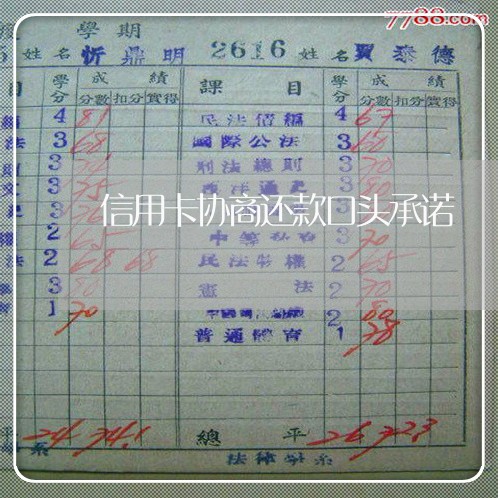 7788.com
學期
姓名 忻鼎明 2616 姓名 賈泰德
目 學分 成績 課目 學分 成績
分數 扣分 實得 分數 扣分 實得
4 81 民法債編 4 67
法 3 68 國際公法 3 60
3 刑法總則 3 70
3 75 3 80
信用卡协商还款口头承诺
3 3
2 65 3 70
法 2 68 68 民法物權 2 65
3 80 憲法 2 70
1 70 2 80
普通體育 1 78
平 24 74.1 總平 26 72.3
系 法律學系